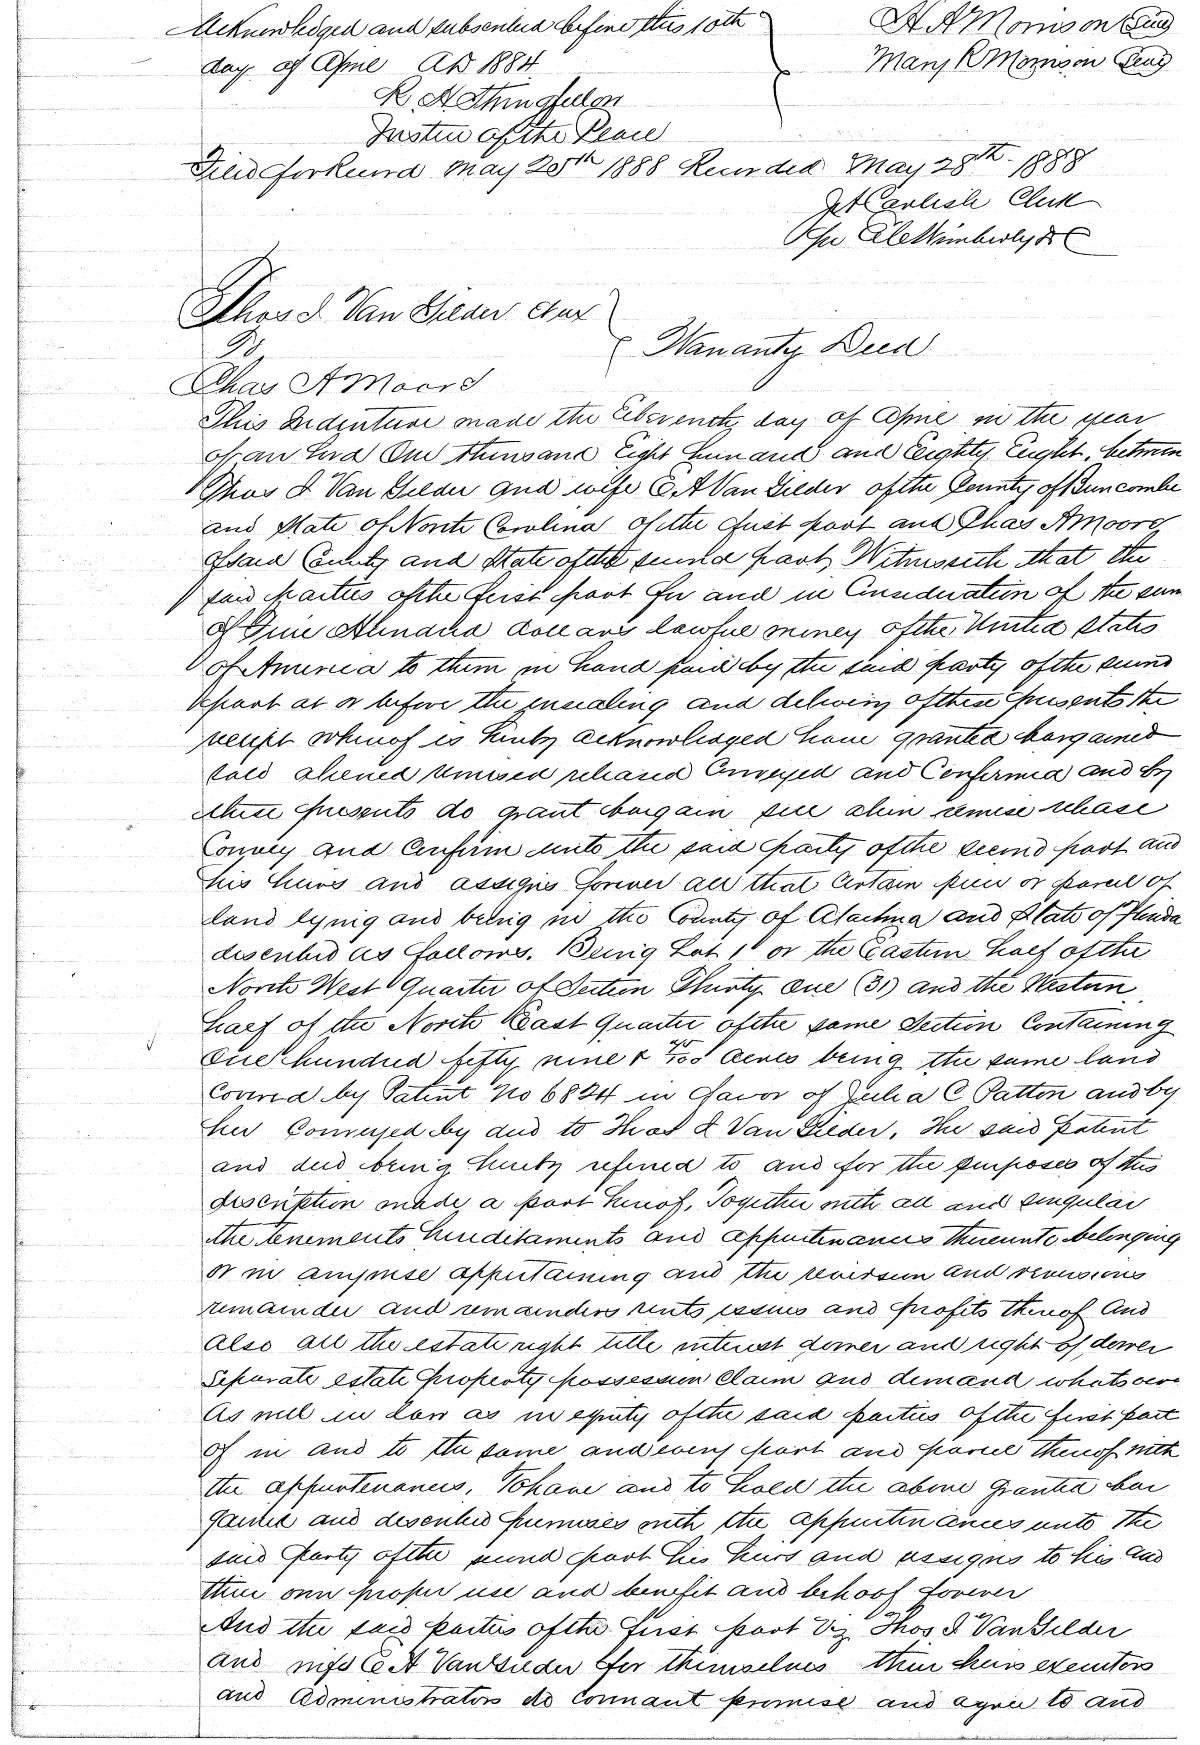 Acknowledged and subscribed before this 10th
day of April AD 1884
H A Morrison Seal
Mary R Morrison Seal
R. H.
Justice of the Peace
Filed for Record May 28th 1888 Recorded May 28th 1888
J A Carlisle Clerk
Per Wimberly D C
Thos I Van Gilder et ux
To
Warranty Deed
Chas A Moore
This Indenture made the Eleventh day of April in the year
of our Lord One thousand Eight hundred and Eighty Eight, between
Thos I Van Gilder and wife E. A Van Gilder of the County of Buncombe
and State of North Carolina of the first part and Chas A Moore
of said County and State of the second part, Witnesseth that the
said parties of the first part for and in Consideration of the sum
of Five Hundred dollars lawful money of the United States
of America to them in hand paid by the said party of the second
part at or before the ensealing and delivery of these presents the
receipt whereof is hereby acknowledged have granted bargained
sold aliened remised released Conveyed and Confirmed and by
these presents do grant bargain sell alien remise release
Convey and Confirm unto the said party of the second part and
his heirs and assigns forever all that certain piece or parcel of
land lying and being in the County of Alachua and State of Florida
described as follows. Being Lot 1 or the Eastern half of the
North West Quarter of Section Thirty One (31) and the Western
half of the North East Quarter of the same Section Containing
One hundred fifty nine & /100 acres being the same land
Covered by Patent No 6824 in favor of Julia C Patton and by
her Conveyed by deed to Thos I Van Gilder. The said Patent
and deed being hereby referred to and for the purposes of this
description made a part hereof. Together with all and singular
the tenements hereditaments and appurtenances thereunto belonging
or in anywise appertaining and the reversion and reversions
remainder and remainders rents issues and profits thereof And
also all the estate right title interest dower and right of dower
separate estate property possession Claim and demand whatsoever
As well in law as in equity of the said parties of the first part
of in and to the same and every part and parcel thereof with
the appurtenances. To have and to hold the above granted bar
gained and described premises with the appurtenances unto the
said party of the second part his heirs and assigns to his and
their own proper use and benefit and behoof forever
And the said parties of the first part Viz Thos I Van Gilder
and wife E. A Van Gilder for themselves their heirs executors
and Administrators do covenant promise and agree to and